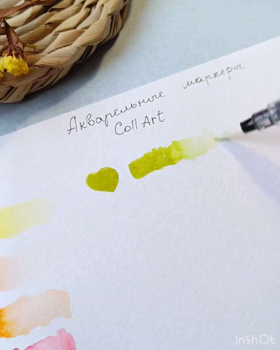 Акварельные маркеры
Coll Art
InShOt